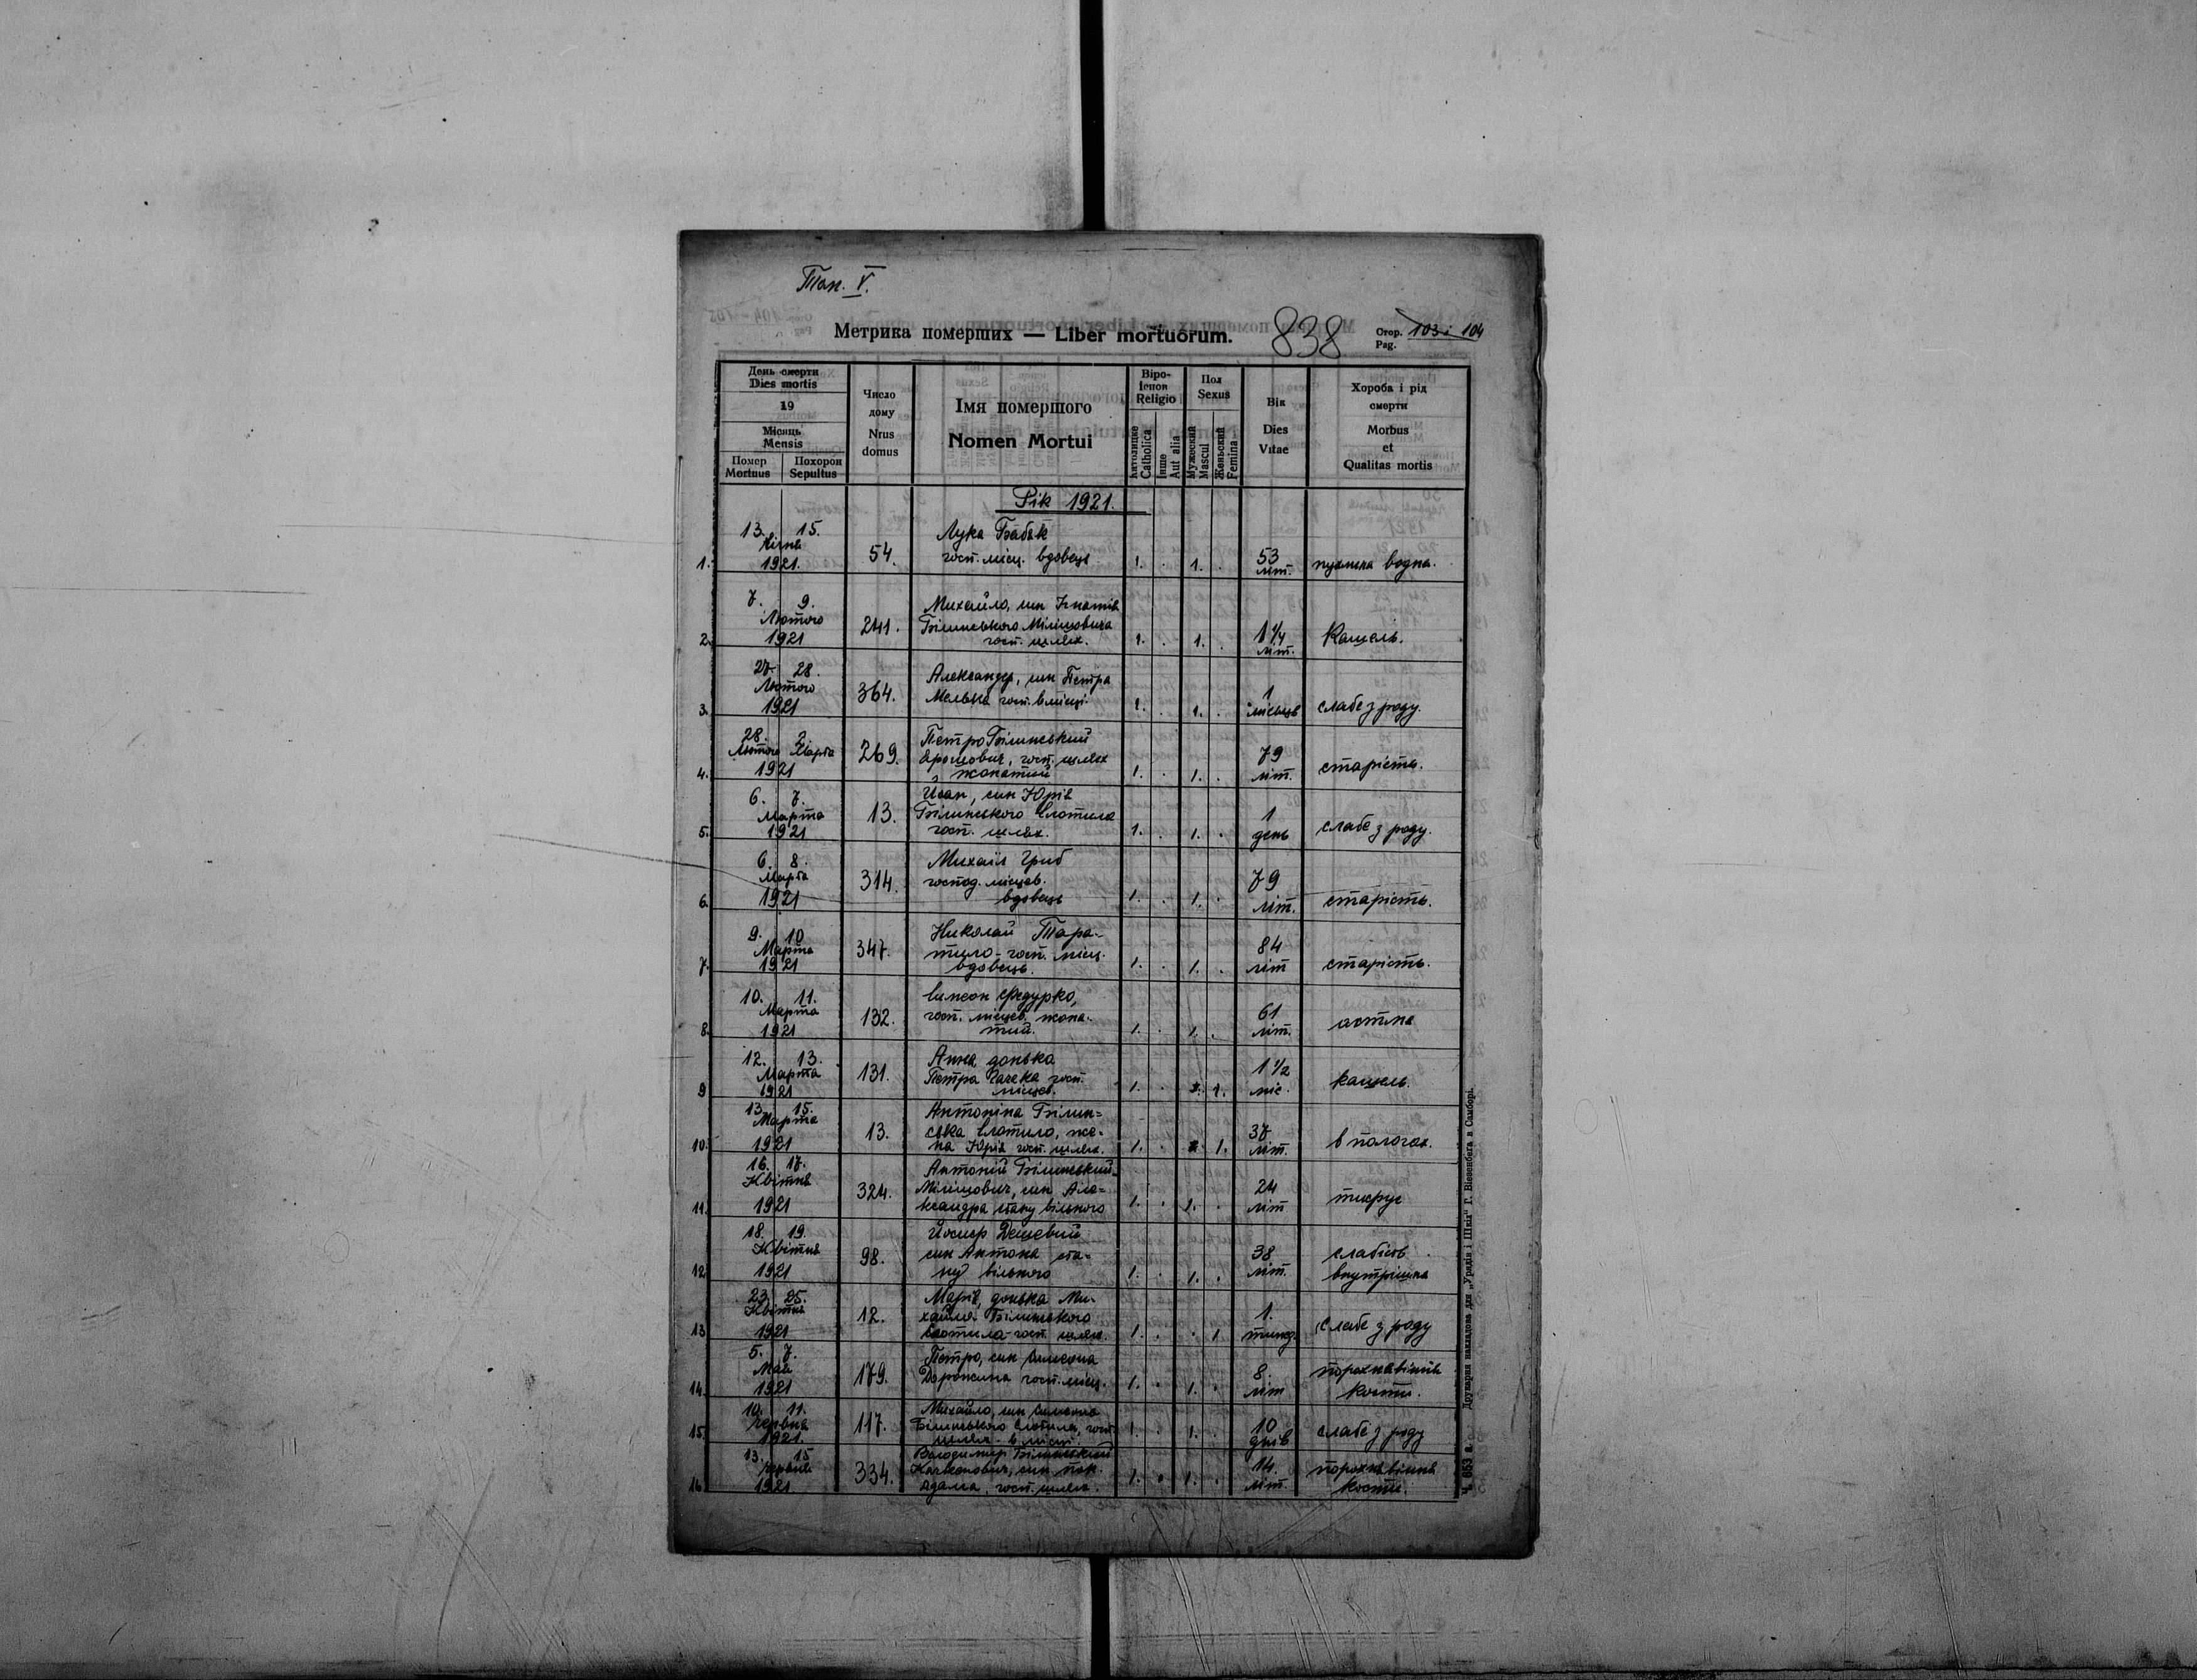 Том. V.
Метрика померших — Liber mortuorum.
838
Стор. 103 і 104
Pag.
День смерти
Dies mortis
19
Місяць
Mensis
Помер
Mortuus
Похорон
Sepultus
Число
дому
Nrus
domus
Імя помершого
Nomen Mortui
Віро-
ісповï
Religio
Католицке
Catholica
Інше
Aut alia
Пол
Sexus
Мужеский
Mascul
Женьский
Femina
Вік
Dies
Vitae
Хороба і рід
смерти
Morbus
et
Qualitas mortis
Рік 1921.
13. 15.
Січня
1921.
1. 54. Лука Бабяк
госп. місц. вдовець
1. . 1. . 53
літ. пухлина водна.
7. 9.
Лютого
1921
2. 241. Михайло, син Ігнатія
Білинського Мілішовича
госп. шлях.
1. . 1. . 1 1/4
літ. Кашель.
27. 28.
Лютого
1921
3. 364. Александер, син Петра
Мелька госп. в місці.
1. . 1. . 1
місяць слабе з роду.
28. 2.
Лютого Марта
1921
4. 269. Петро Білинський
Ярошович, госп. шлях
жонатий
1. . 1. . 79
літ. старість.
6. 7.
Марта
1921
5. 13. Иван, син Юрія
Білинського Слотила
госп. шлях.
1. . 1. . 1
день слабе з роду.
6. 8.
Марта
1921
6. 314. Михаїл Гриб
господ. місцев.
вдовець
1. . 1. . 79
літ. старість.
9. 10
Марта
1921
7. 347. Николай Тара-
тило - госп. місц.
вдовець.
1. . 1. . 84
літ старість.
10. 11.
Марта
1921
8. 132. Симеон Федурко,
госп. місцев. жона-
тий.
1. . 1. . 61
літ. астма
12. 13.
Марта
1921
9 131. Анна, донька
Петра госп.
місцев.
1. . 1. 1 1/2
міс. кашель.
13. 15.
Марта
1921
10. 13. Антоніна Білин=
ська Слотило, же-
на Юрія госп. шлях.
1. . 1. 37
літ. в пологах.
16. 17.
Квітня
1921
11. 324. Антоній Білинський
Мілішович, син Але=
ксандра стану вільного
1. . 1. . 24
літ тифус
18. 19.
Квітня
1921
12. 98. Йосиф Дешевий
син Антона ста=
ну вільного
1. . 1. . 38
літ. слабість
внутрішна
23. 25.
Квітня
1921
13 12. Марія, донька Ми-
хайла Білинського
Слотила госп. шлях.
1. . . 1 1.
тижд. слабе з роду
5. 7.
Мая
1921
14. 179. Петро, син Симеона
Дорожина госп. місц.
1. . 1. . 8.
літ порохнавіння
кости.
10. 11.
Червня
1921.
15. 117. Михайло, син Симеона
Білинського Слотила, госп.
шлях. в місци
1. . 1. . 10
днів слабе з роду
13. 15
Червня
1921
16. 334. Володимир Білинський
син пок.
Адама, госп. шлях.
1. . 1. . 14.
літ. порохнавіння
кости.
Ч. 653 а. Друкарня накладова для „Урядів і Шкіл" Г. Віезенберга в Самборі.